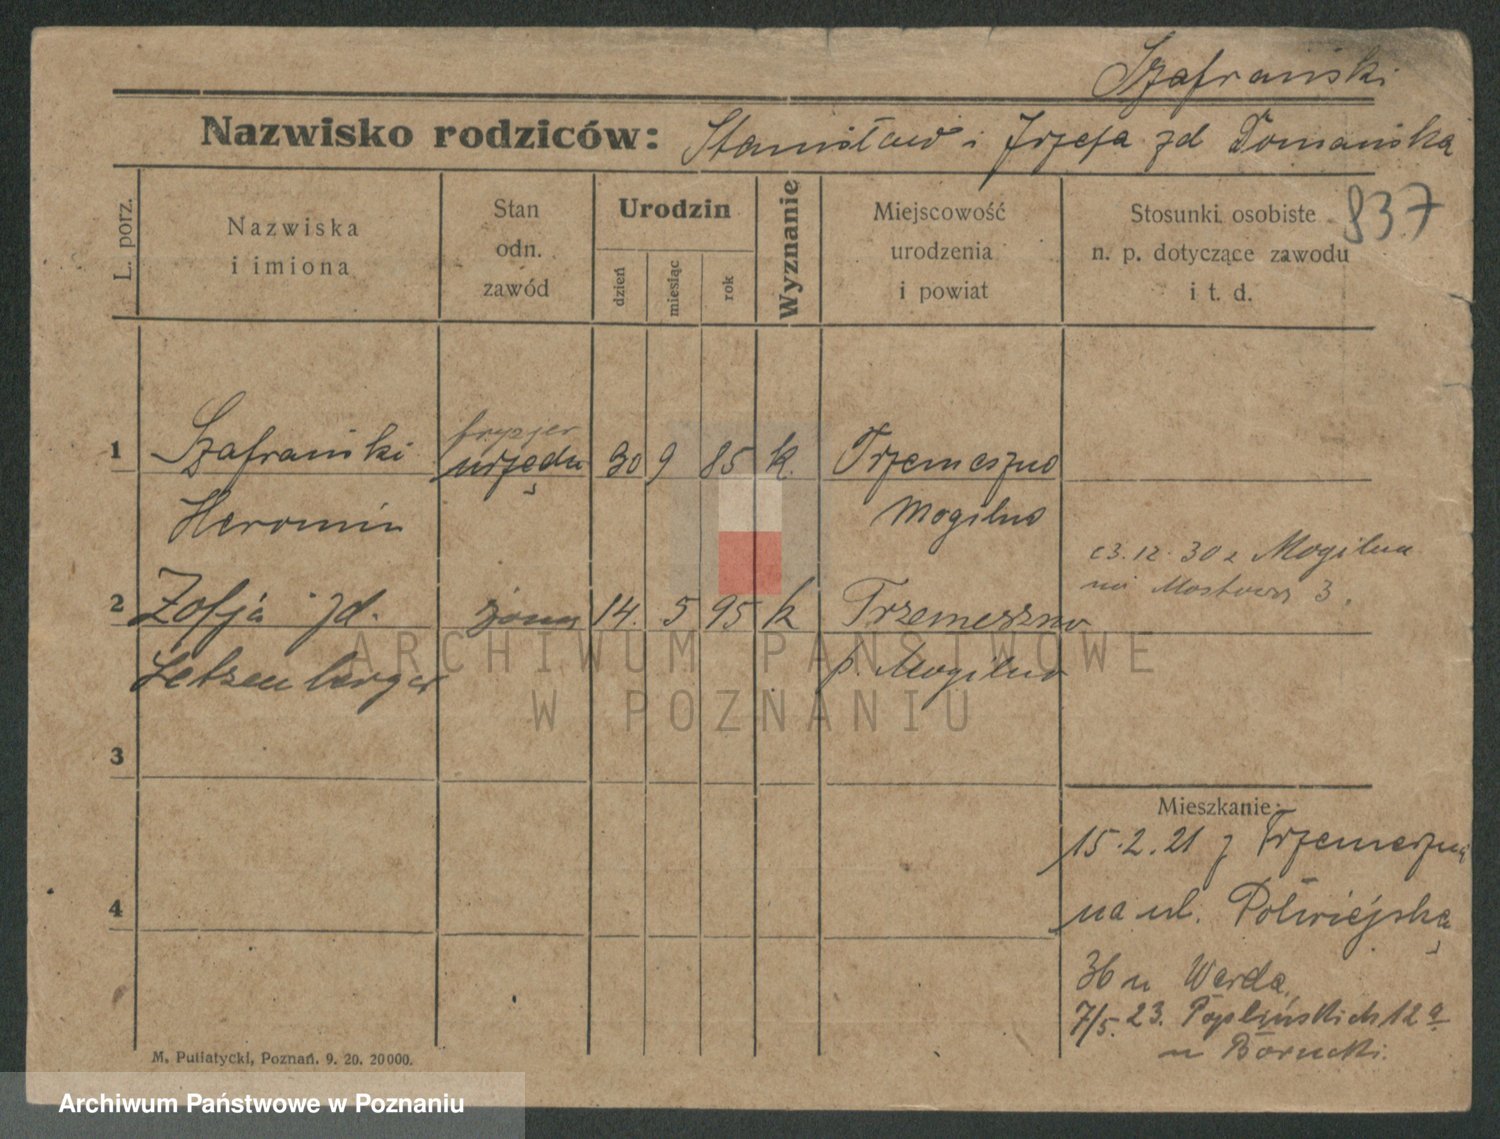 Szafrański
Nazwisko rodziców: Stanisław i Józefa zd Domańska
L. porz.
Nazwiska
i imiona
Stan
odn.
zawód
Urodzin
dzień
miesiąc
rok
Wyznanie
Miejscowość
urodzenia
i powiat
Stosunki osobiste
n. p. dotyczące zawodu
i t. d.
837
fryzjer
1 Szafrański urzędn 30 9 85 k. Trzemeszno
Heronim Mogilno
23.12.30 z Mogilna
na Mostowa 3.
2 Zofja zd. żona 14. 5 95 k Trzemeszno
p. Mogilno
ARCHIWUM PAŃSTWOWE
W POZNANIU
3
Mieszkanie:
15.2.21 z Trzemeszna
na ul. Półwiejską
4
36 u Warda
7/5.23. Poplińskich 12a
u Borucki.
M. Putiatycki, Poznań. 9. 20. 20000.
Archiwum Państwowe w Poznaniu